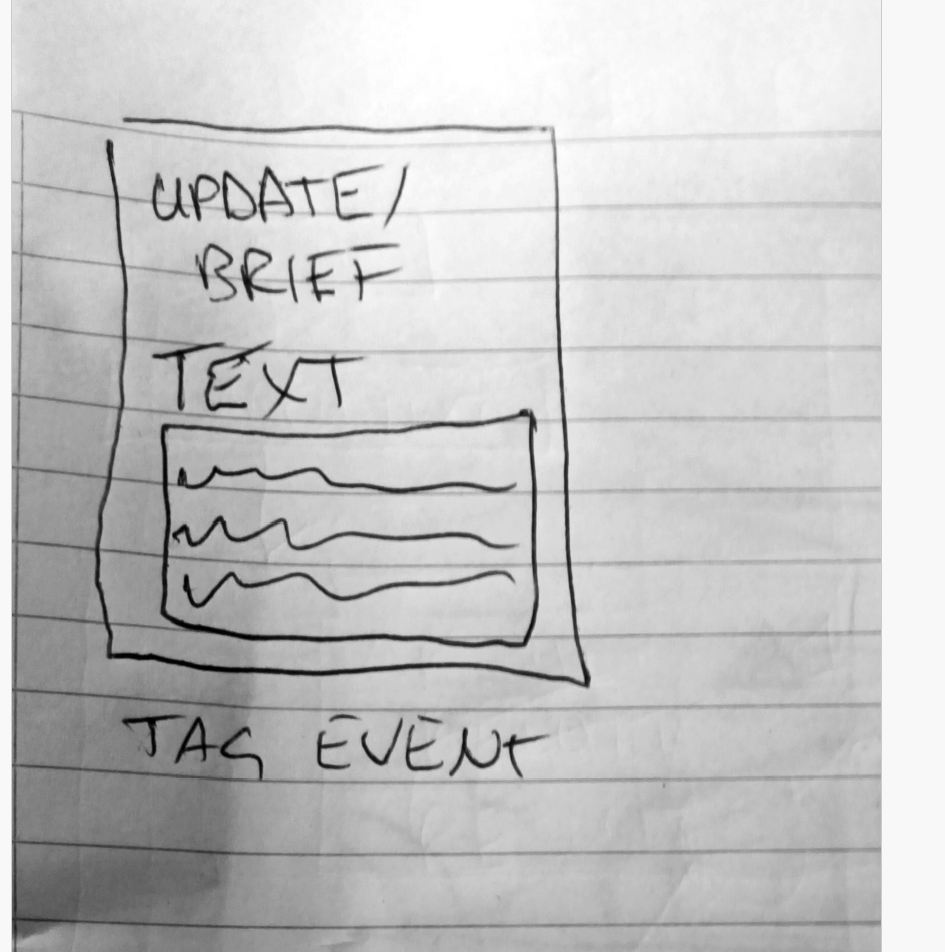 UPDATE/
BRIEF
TEXT
TAG EVENT